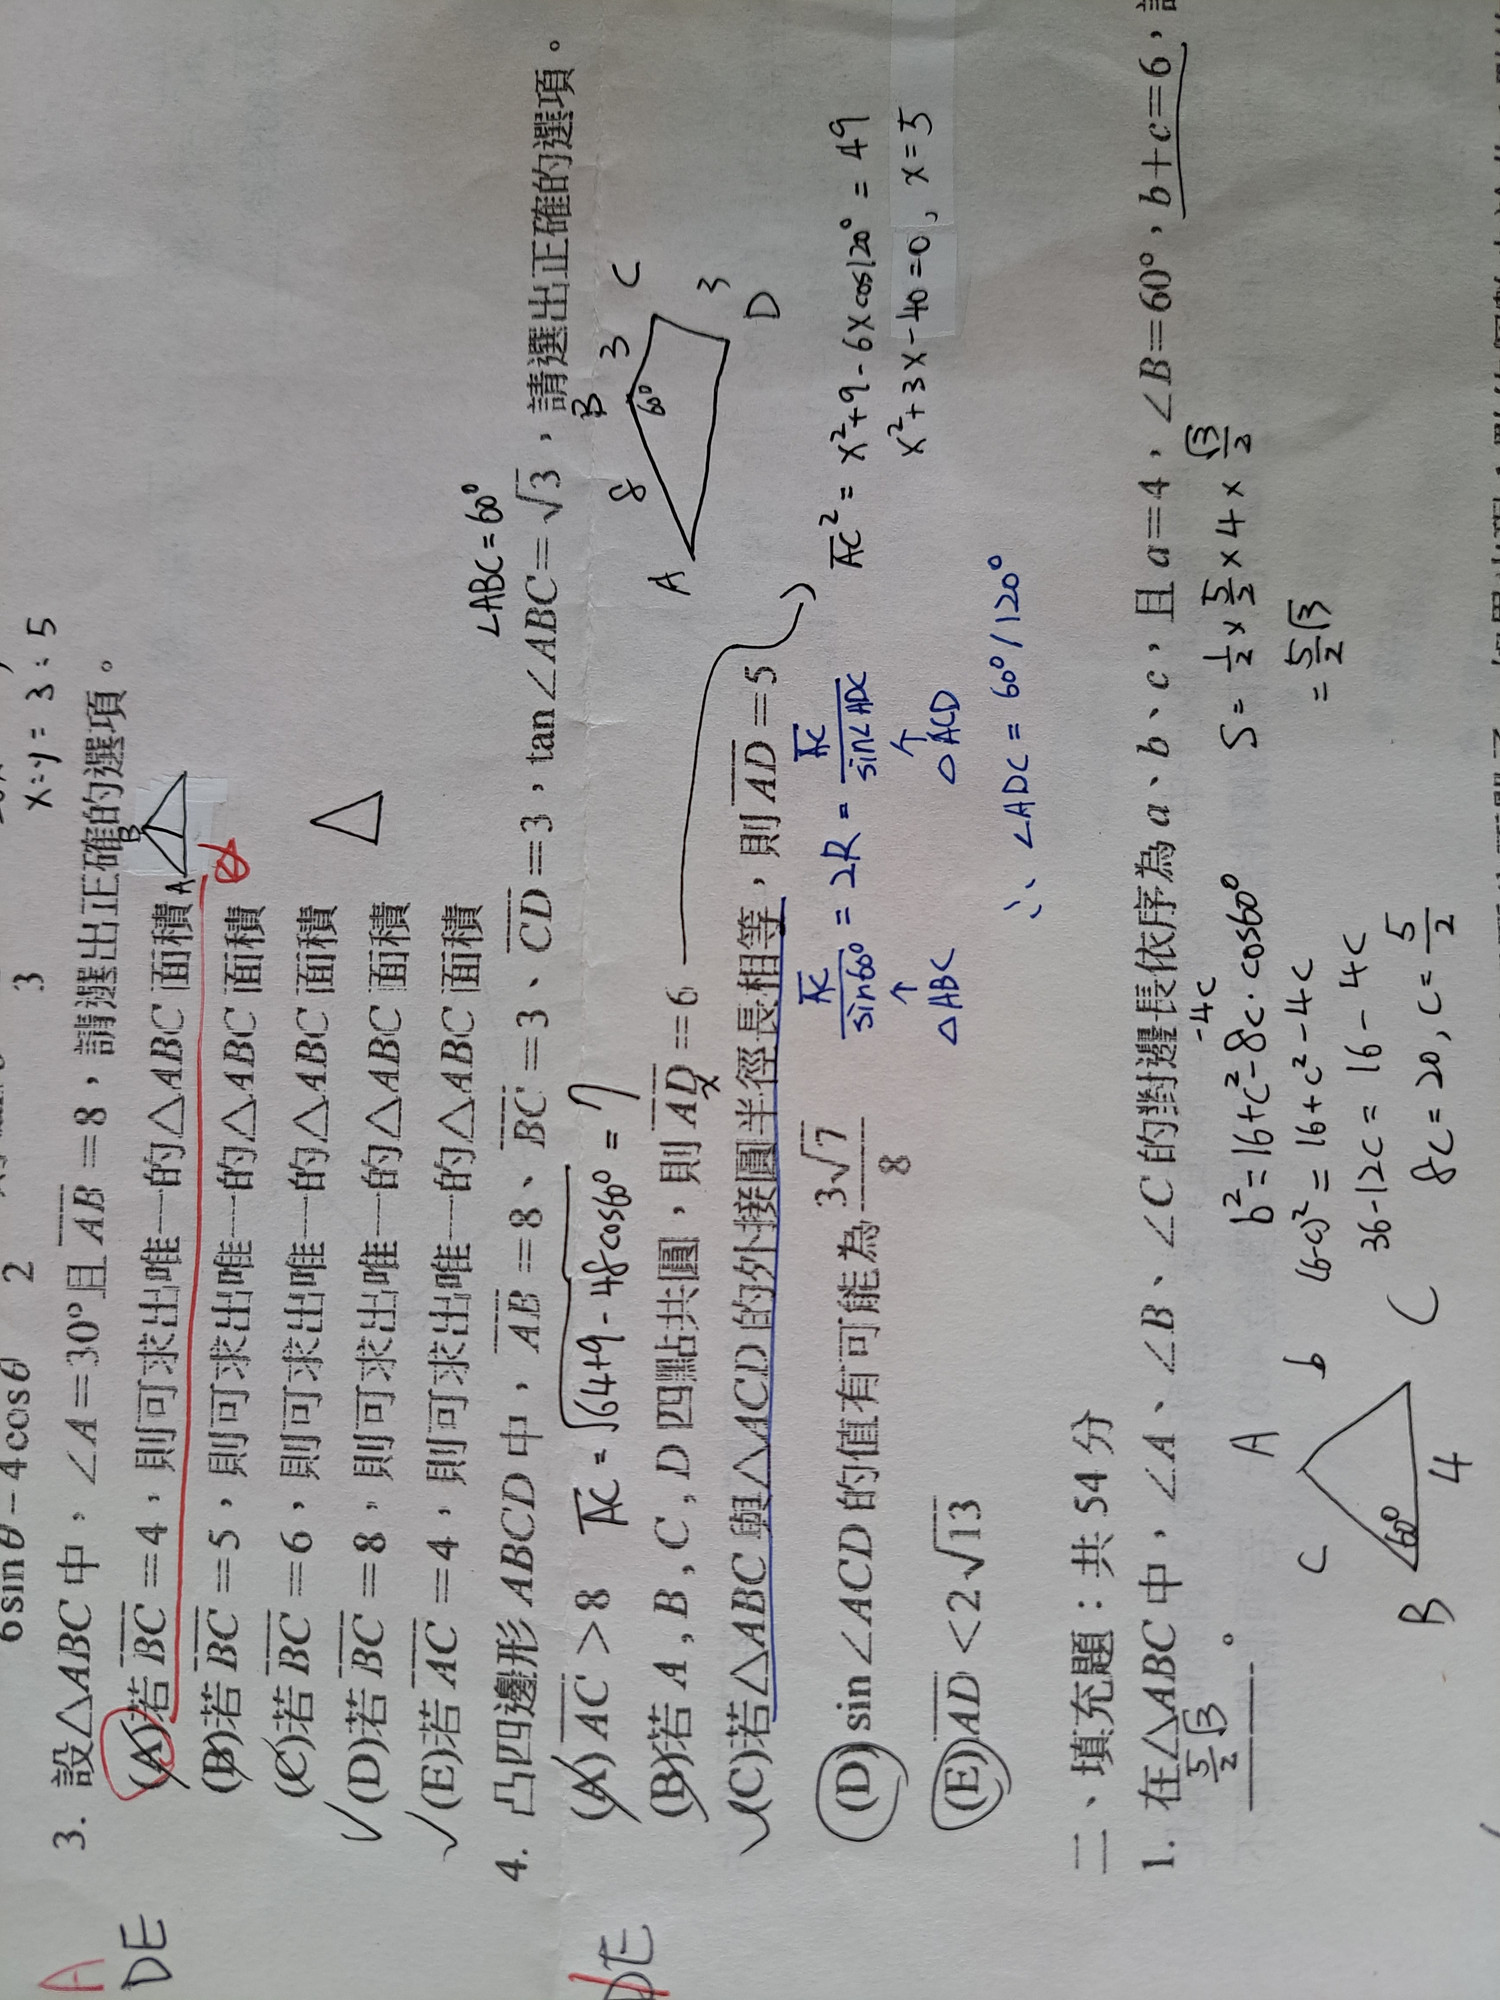 6sinθ－4cosθ 2 3
x:y = 3:5
A
DE
3. 設△ABC中，∠A＝30°且AB＝8，請選出正確的選項。
(A)若BC＝4，則可求出唯一的△ABC面積
A B
(B)若BC＝5，則可求出唯一的△ABC面積
(C)若BC＝6，則可求出唯一的△ABC面積
(D)若BC＝8，則可求出唯一的△ABC面積
(E)若AC＝4，則可求出唯一的△ABC面積
∠ABC = 60°
DE
4. 凸四邊形ABCD中，AB＝8、BC＝3、CD＝3，tan∠ABC＝√3，請選出正確的選項。
(A) AC＞8 AC = √64+9-48cos60° = 7
(B)若A，B，C，D四點共圓，則AD＝6
x
A 8 B 3 C 3 D 60°
(C)若△ABC與△ACD的外接圓半徑長相等，則AD＝5
AC² = x²+9-6xcos120° = 49
x²+3x-40=0, x=5
AC/sin60° = 2R = AC/sin∠ADC
↑ ↑
△ABC △ACD
∴ ∠ADC = 60°/120°
(D) sin∠ACD的值有可能為 3√7/8
(E) AD＜2√13
二、填充題：共54分
1. 在△ABC中，∠A、∠B、∠C的對邊長依序為a、b、c，且a＝4，∠B＝60°，b＋c＝6，
5/2 √3 。
A
B
C
c b
60°
4
b² = 16+c²-8c·cos60°
-4c
(6-c)² = 16+c²-4c
36-12c = 16-4c
8c = 20, c = 5/2
S = 1/2 × 5/2 × 4 × √3/2
= 5/2 √3